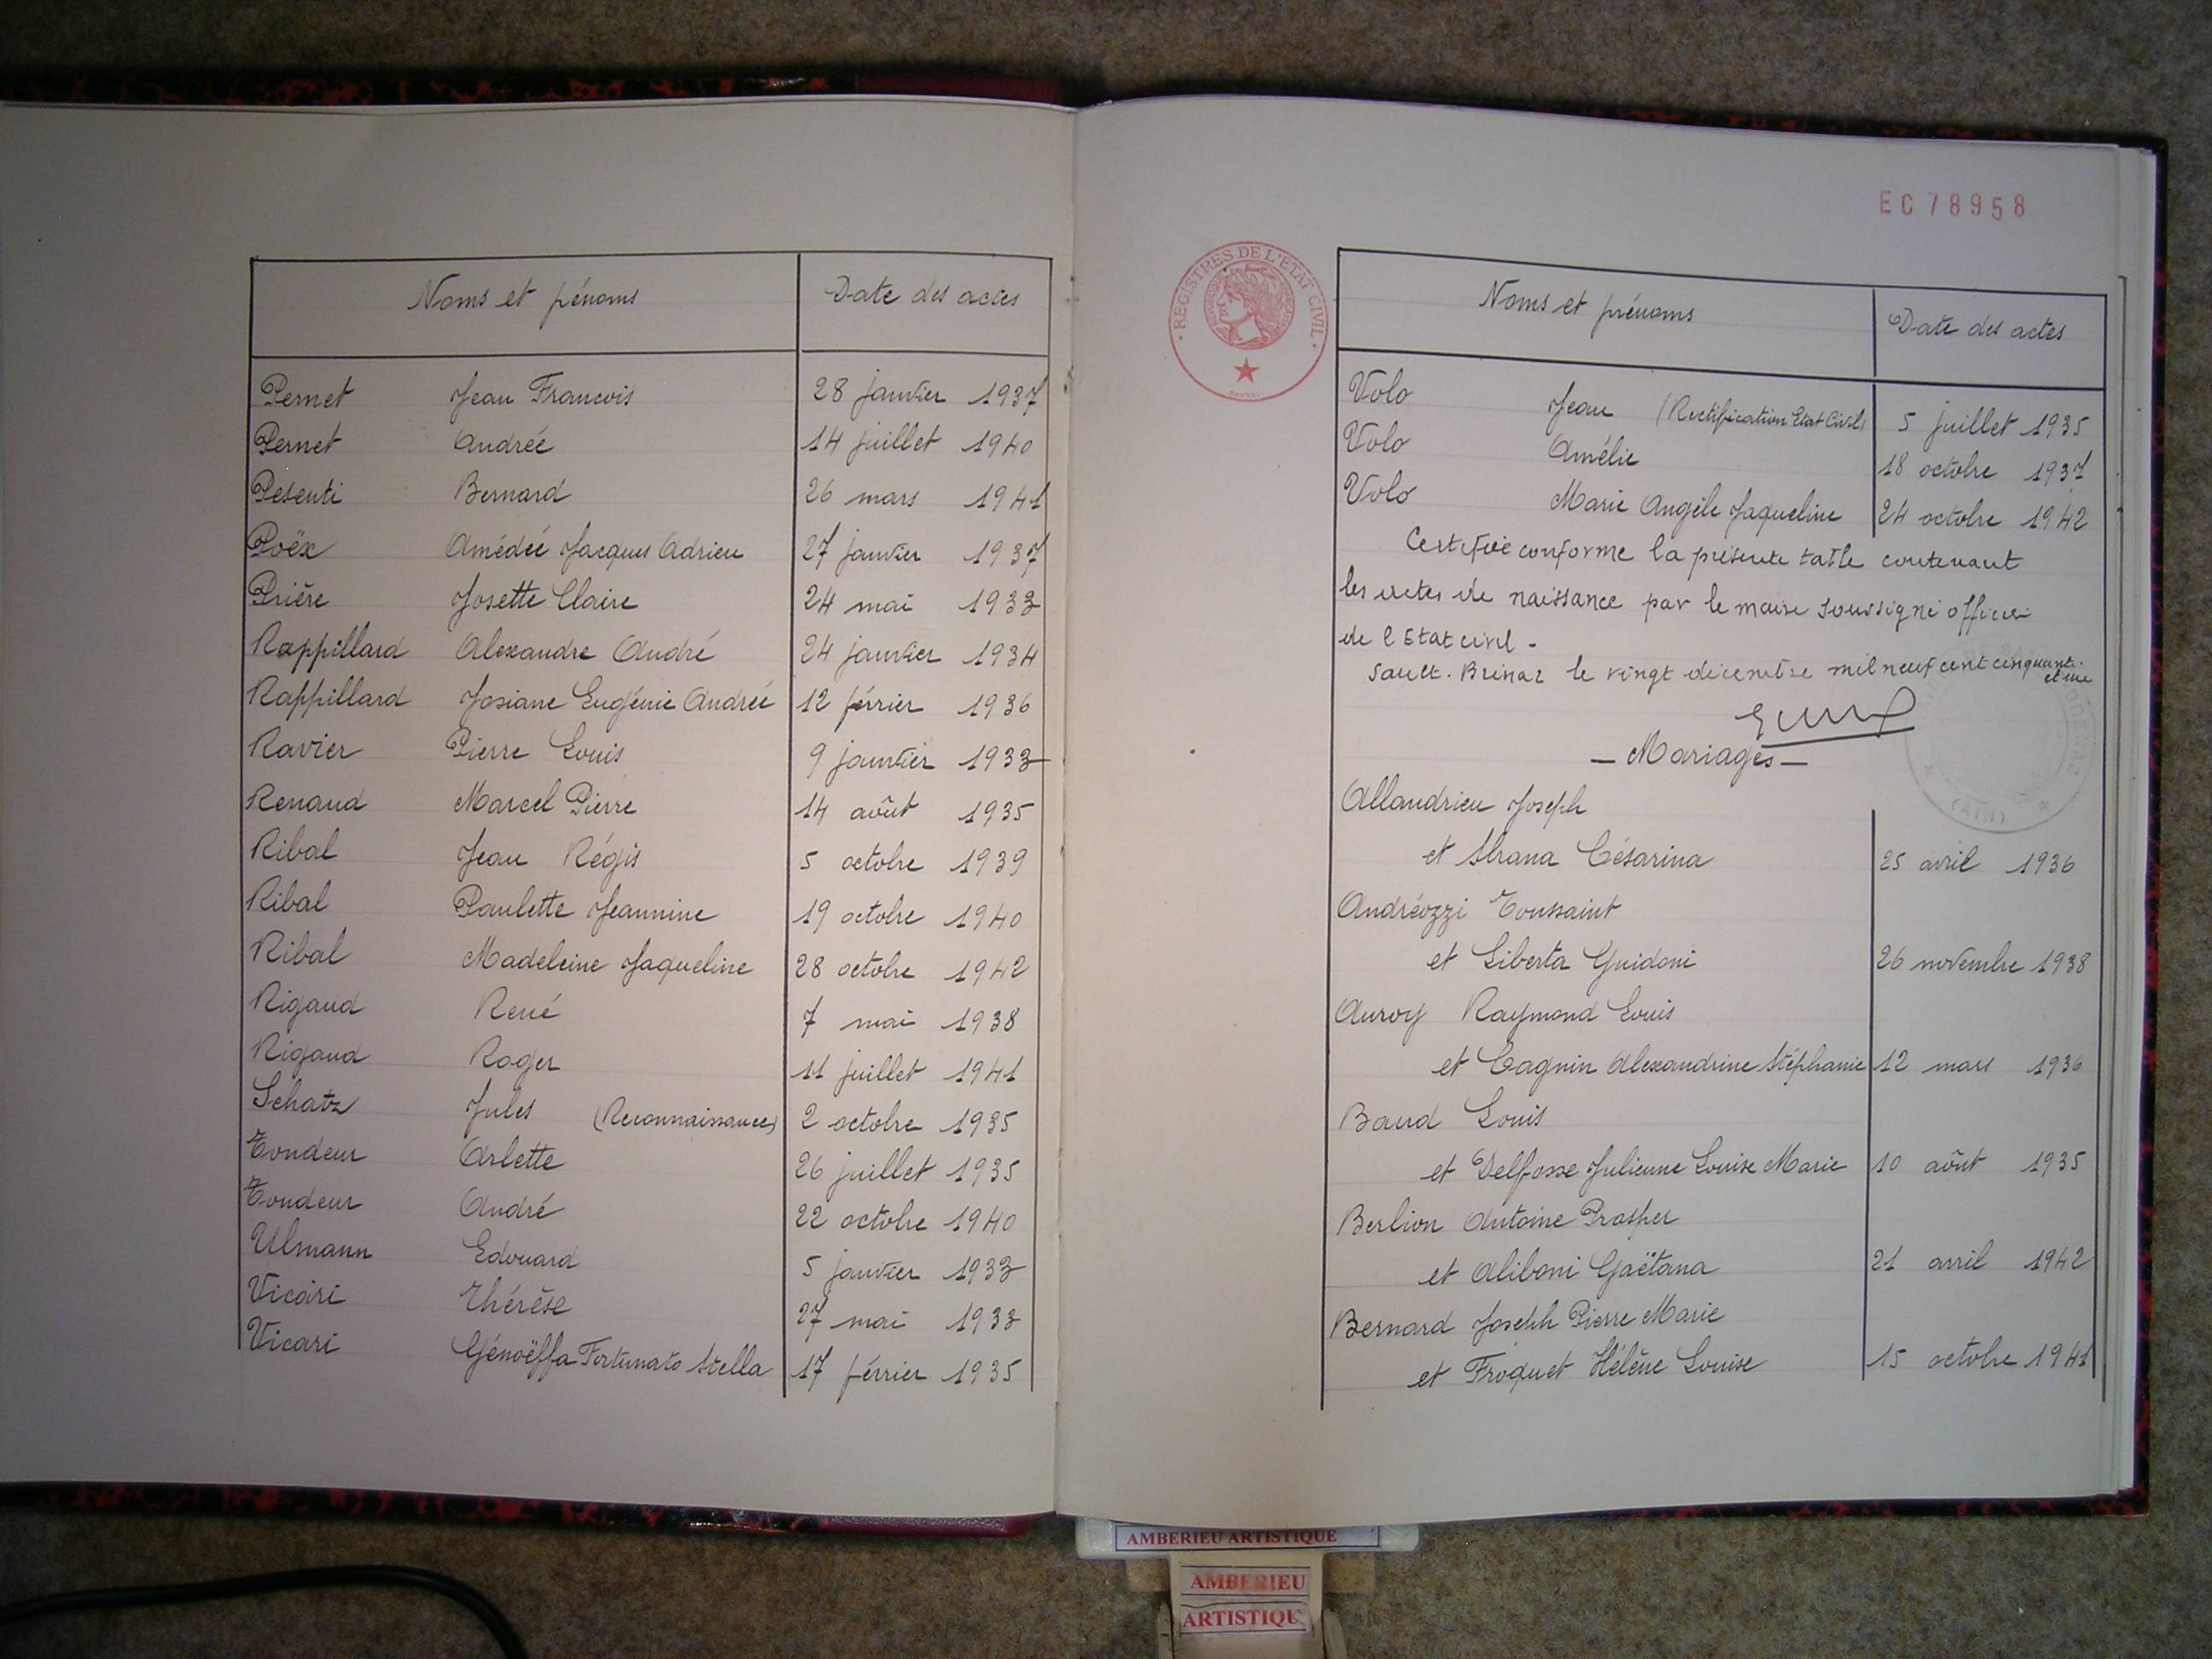 Noms et prénoms Date des actes
Pernet Jean Francois 28 janvier 1937
Pernet Andrée 14 juillet 1940
Pesenti Bernard 26 mars 1941
Poëx Amédée Jacques Adrien 27 janvier 1937
Prière Josette Claire 24 mai 1933
Rappillard Alexandre André 24 janvier 1934
Rappillard Josiane Eugénie Andrée 12 février 1936
Ravier Pierre Louis 9 janvier 1933
Renaud Marcel Pierre 14 août 1935
Ribal Jean Régis 5 octobre 1939
Ribal Paulette Jeannine 19 octobre 1940
Ribal Madeleine Jaqueline 28 octobre 1942
Rigaud René 7 mai 1938
Rigaud Roger 11 juillet 1941
Schatz Jules (Reconnaissance) 2 octobre 1935
Tondeur Arlette 26 juillet 1935
Tondeur André 22 octobre 1940
Ulmann Edouard 5 janvier 1933
Vicari Thérèse 27 mai 1933
Vicari Génoëffa Fortunato Stella 17 février 1935
EC78958
REGISTRES DE L'ETAT CIVIL
Noms et prénoms Date des actes
Volo Jean (Rectification Etat Civil) 5 juillet 1935
Volo Amélie 18 octobre 1937
Volo Marie Angèle Jaqueline 24 octobre 1942
Certifiée conforme la présente table contenant
les actes de naissance par le maire soussigné officier
de l'Etat civil.
Sault-Brénaz le vingt décembre mil neuf cent cinquante
et une
- Mariages -
(AIN)
Allandrieu Joseph
et Strana Césarina 25 avril 1936
Andréozzi Toussaint
et Liberta Guidoni 26 novembre 1938
Auroy Raymond Louis
et Cagnin Alexandrine Stéphanie 12 mars 1936
Baud Louis
et Delfosse Julienne Louise Marie 10 août 1935
Berlion Antoine Prosper
et Aliboni Gaëtana 21 avril 1942
Bernard Joseph Pierre Marie
et Froquet Hélène Louise 15 octobre 1941
AMBERIEU ARTISTIQUE
AMBERIEU
ARTISTIQU